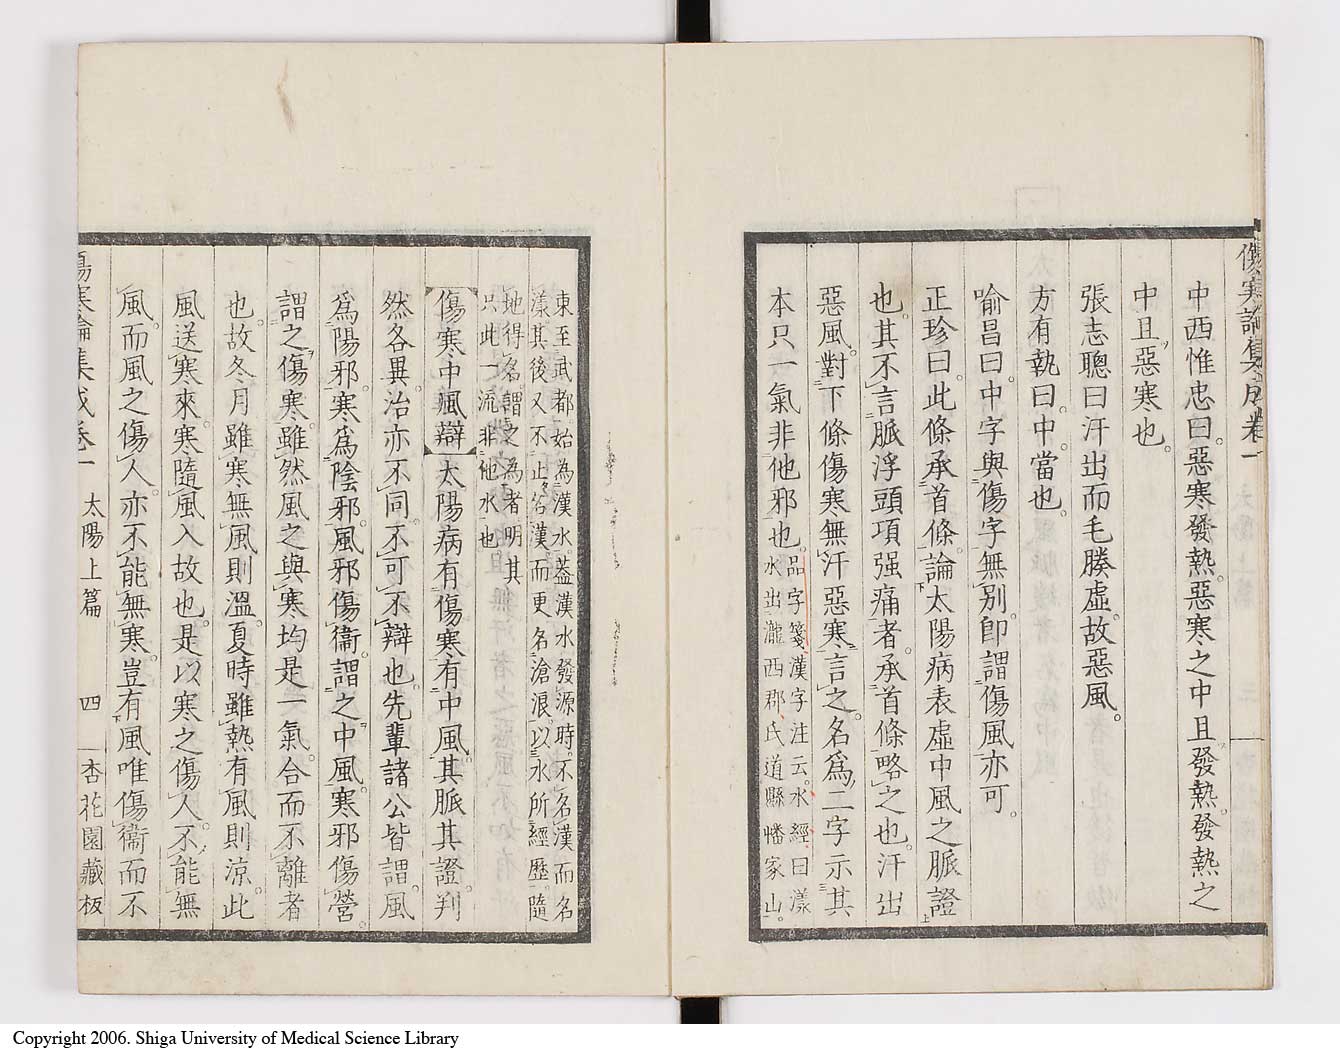 傷寒論集成卷一
中西惟忠曰惡寒發熱惡寒之中且發熱發熱之
中且惡寒也
張志聰曰汗出而毛腠虛故惡風
方有執曰中當也
喻昌曰中字與傷字無別卽謂傷風亦可
正珍曰此條承首條論太陽病表虛中風之脈證
也其不言脈浮頭項强痛者承首條略之也汗出
惡風對下條傷寒無汗惡寒言之名爲二字示其
本只一氣非他邪也
品字箋漢字注云水經曰漾
水出瀧西郡氐道縣嶓冢山
東至武都始為漢水葢漢水發源時不名漢而名
漾其後又不止名漢而更名滄浪以水所經歷隨
地得名謂之為者明其
只此一流非他水也
傷寒中風辯 太陽病有傷寒有中風其脈其證判
然各異治亦不同不可不辯也先輩諸公皆謂風
爲陽邪寒爲陰邪風邪傷衞謂之中風寒邪傷營
謂之傷寒雖然風之與寒均是一氣合而不離者
也故冬月雖寒無風則溫夏時雖熱有風則涼此
風送寒來寒隨風入故也是以寒之傷人不能無
風而風之傷人亦不能無寒豈有風唯傷衞而不
傷寒論集成卷一 太陽上篇 四 杏花園藏板
Copyright 2006. Shiga University of Medical Science Library